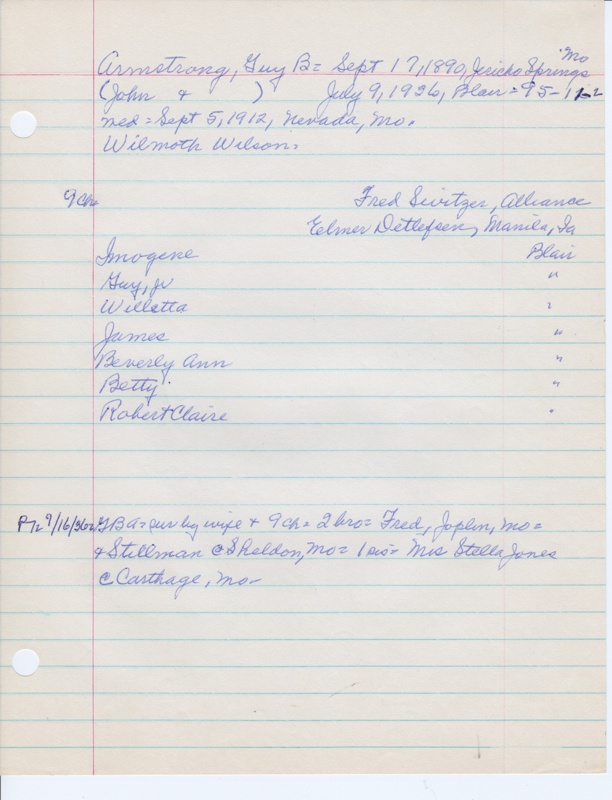 Mo
Armstrong, Guy B = Sept 17, 1890, Jericho Springs
(John + ) July 9, 1936, Blair = 95-1-2
med = Sept 5, 1912, Nevada, Mo.
Wilmoth Wilson.
9 ch= Fred Sivitzer, Alliance
Elmer Detlefsen, Manila, Ia
Imogene Blair
Guy, Jr "
Willetta "
James "
Beverly Ann "
Betty "
Robert Claire "
9/16/36 = GBA = sur by wife + 9 ch = 2 bro = Fred, Joplin, Mo =
+ Stillman @ Sheldon, Mo = 1 sis = Mrs Stella Jones
@ Carthage, Mo -